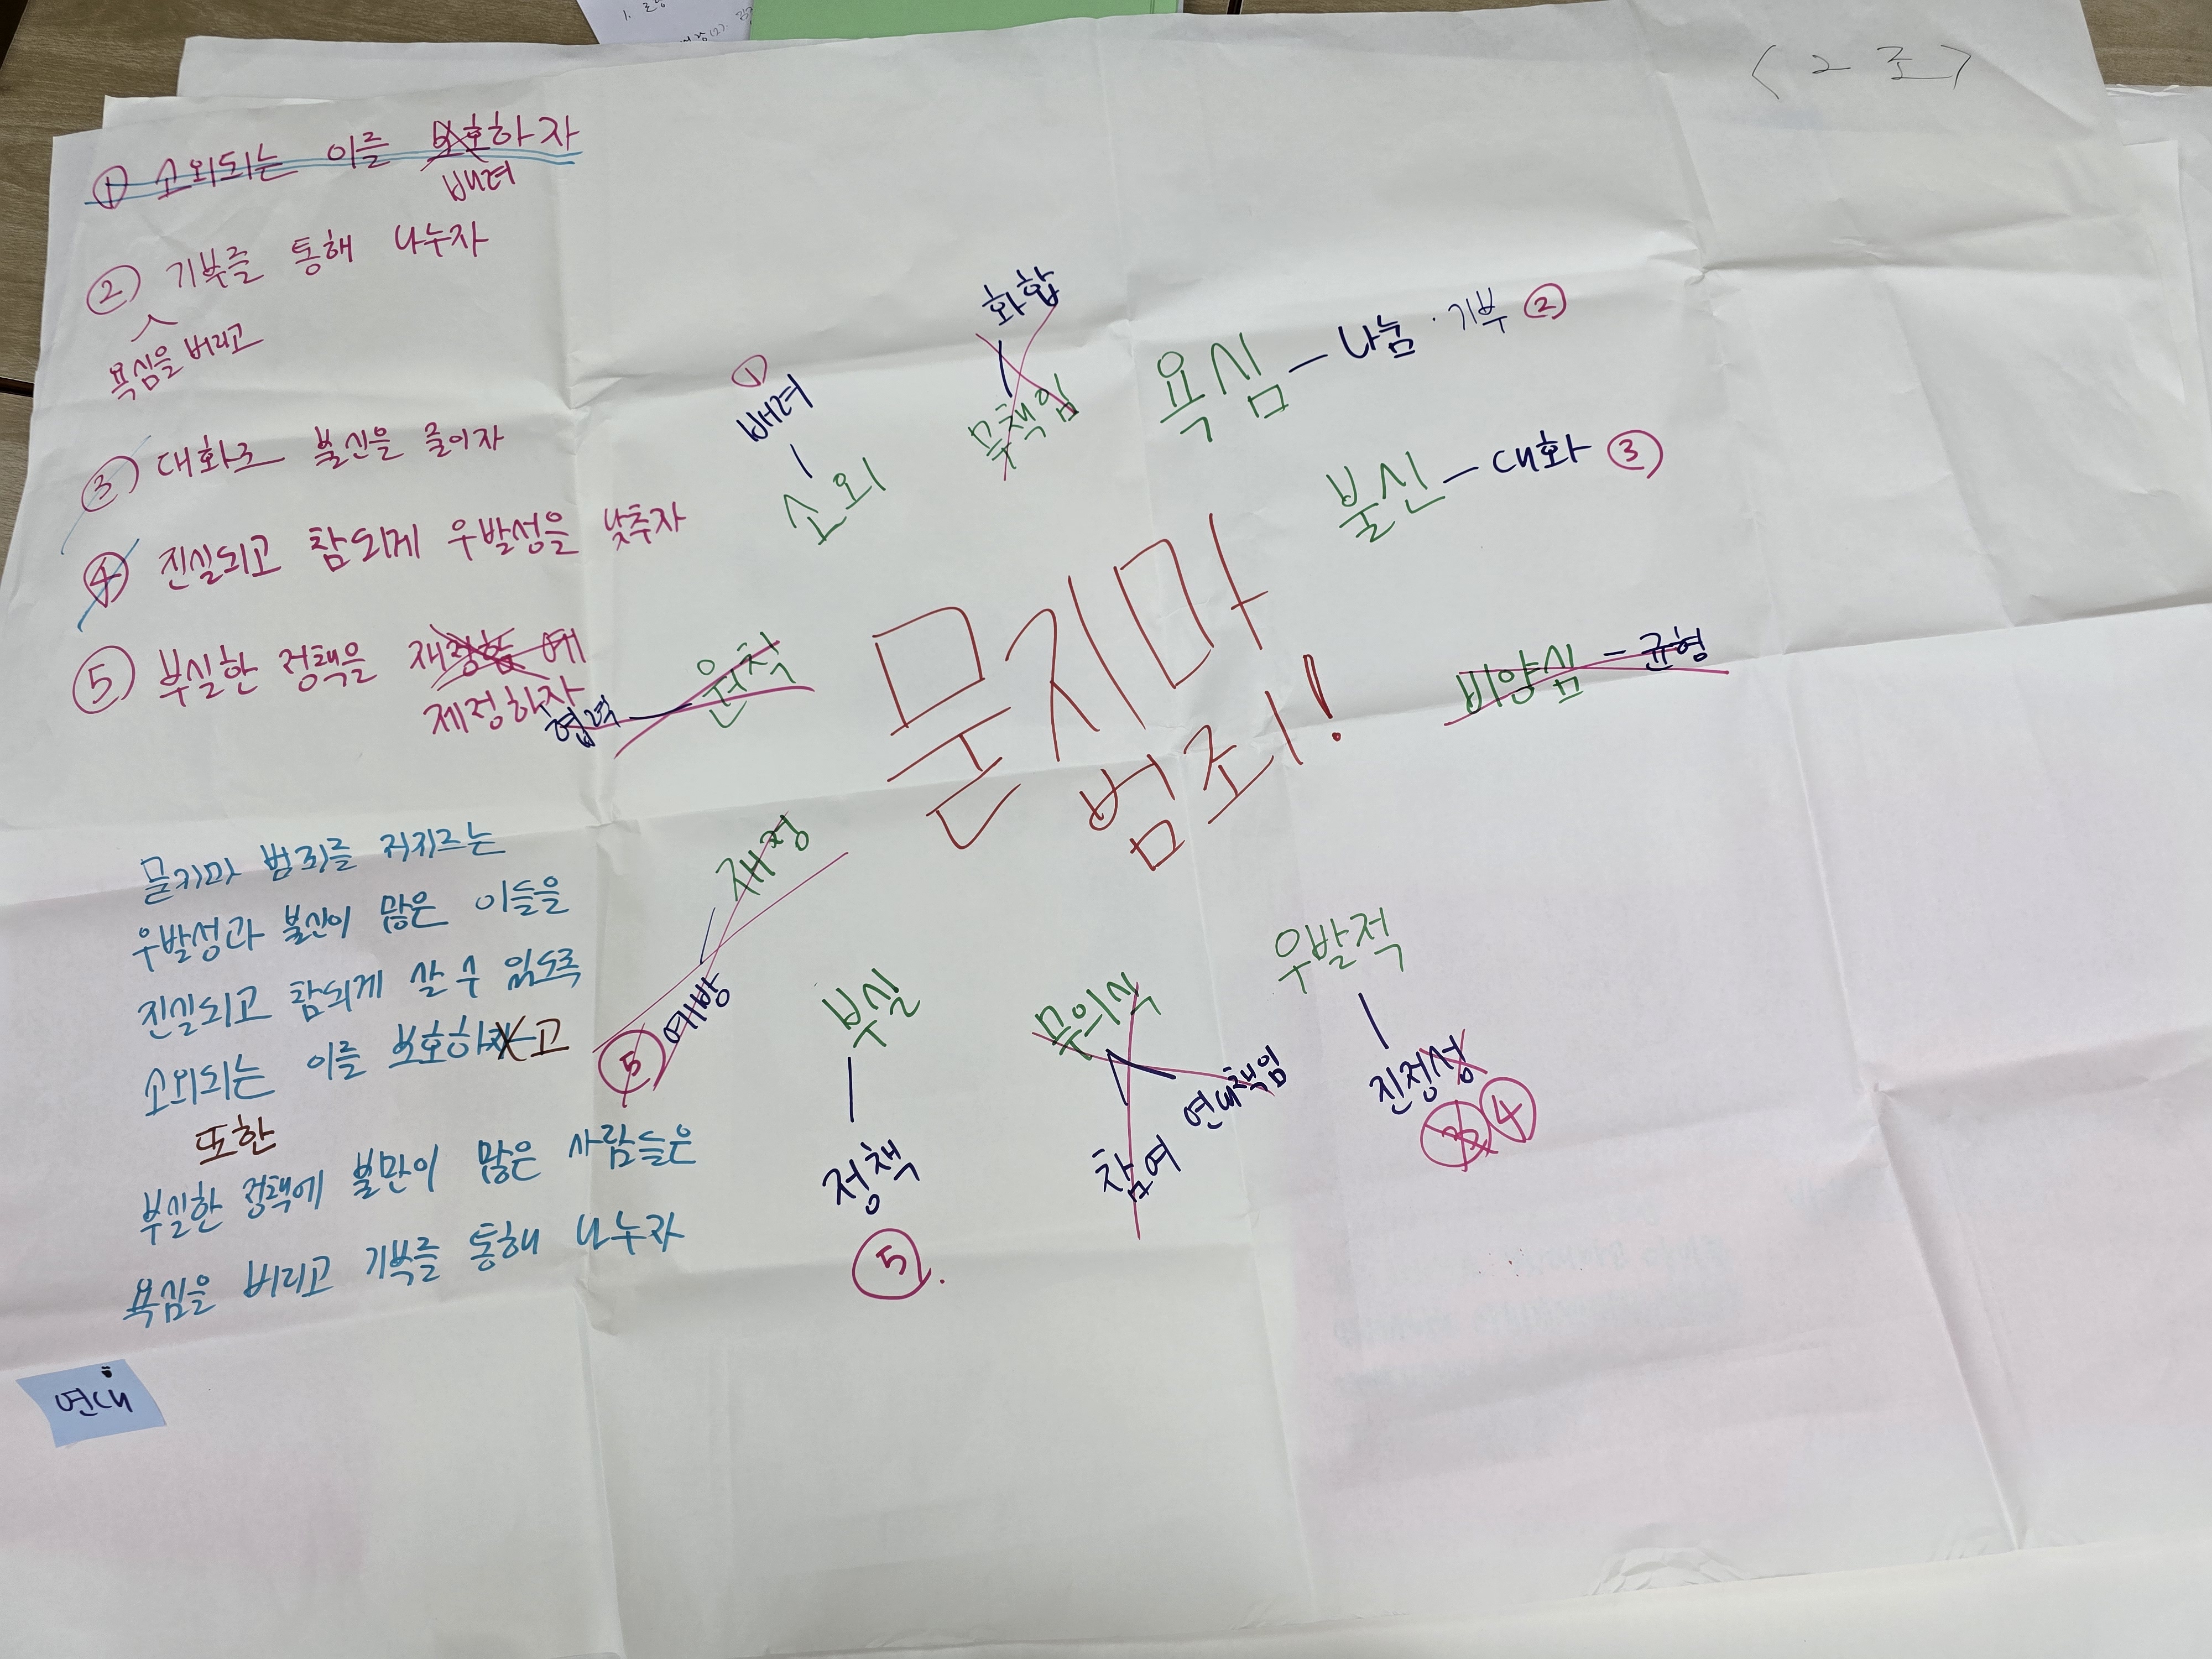 <2조>
① 소외되는 이를 보호하자
배려
② 기부를 통해 나누자
욕심을 버리고
③ 대화로 불신을 줄이자
④ 진실되고 참되게 우발성을 낮추자
⑤ 부실한 정책을
제정하자
화합
무책임
① 배려
소외
욕심 – 나눔 · 기부 ②
불신 – 대화 ③
협력 – 원칙
묻지마
범죄!
비양심 – 균형
재정
⑤ 예방
부실
정책
⑤.
무의식
연대책임
참여
우발적
진정성
④
묻지마 범죄를 저지르는
우발성과 불신이 많은 이들을
진실되고 참되게 살 수 있도록
소외되는 이를 보호하고
또한
부실한 정책에 불만이 많은 사람들은
욕심을 버리고 기부를 통해 나누자
연대